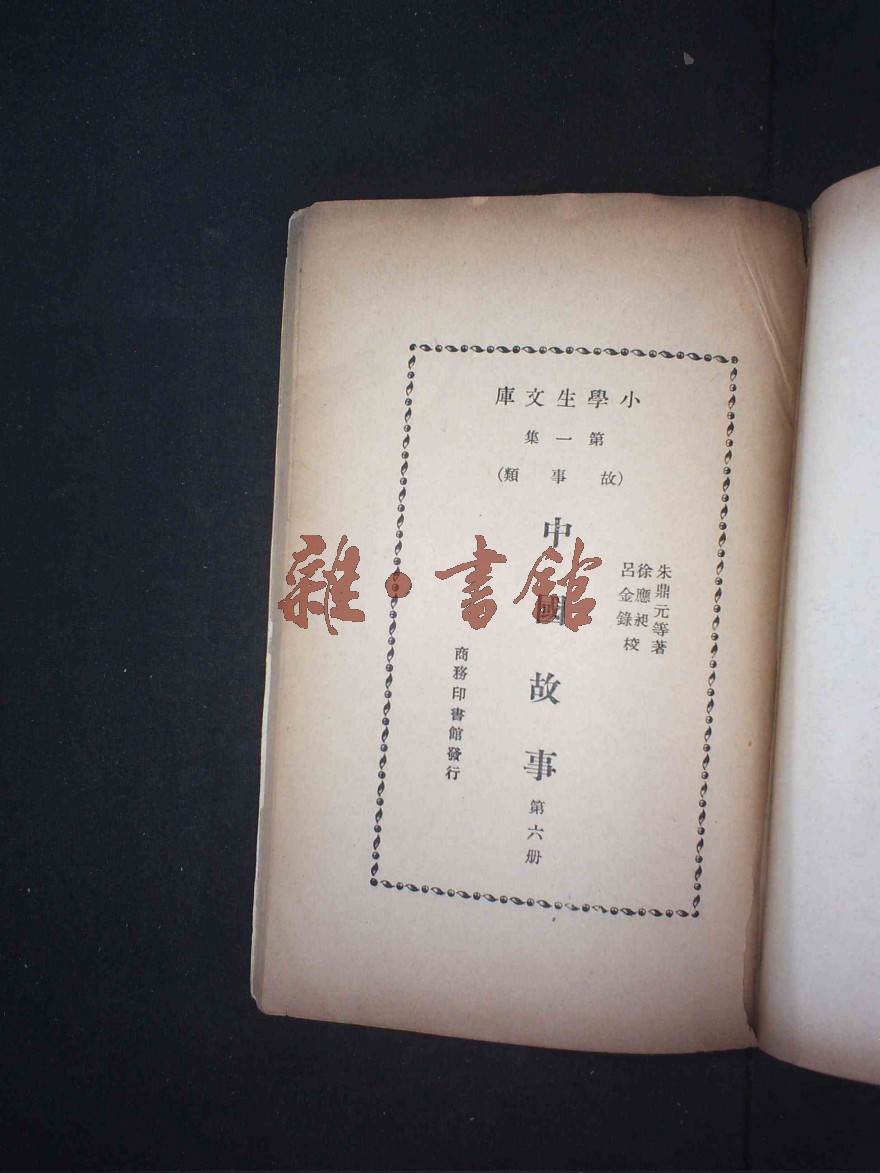 小學生文庫
第一集
(故事類)
朱鼎元等著
徐應昶
呂金錄校
中國故事 第六册
商務印書館發行
雜·書館